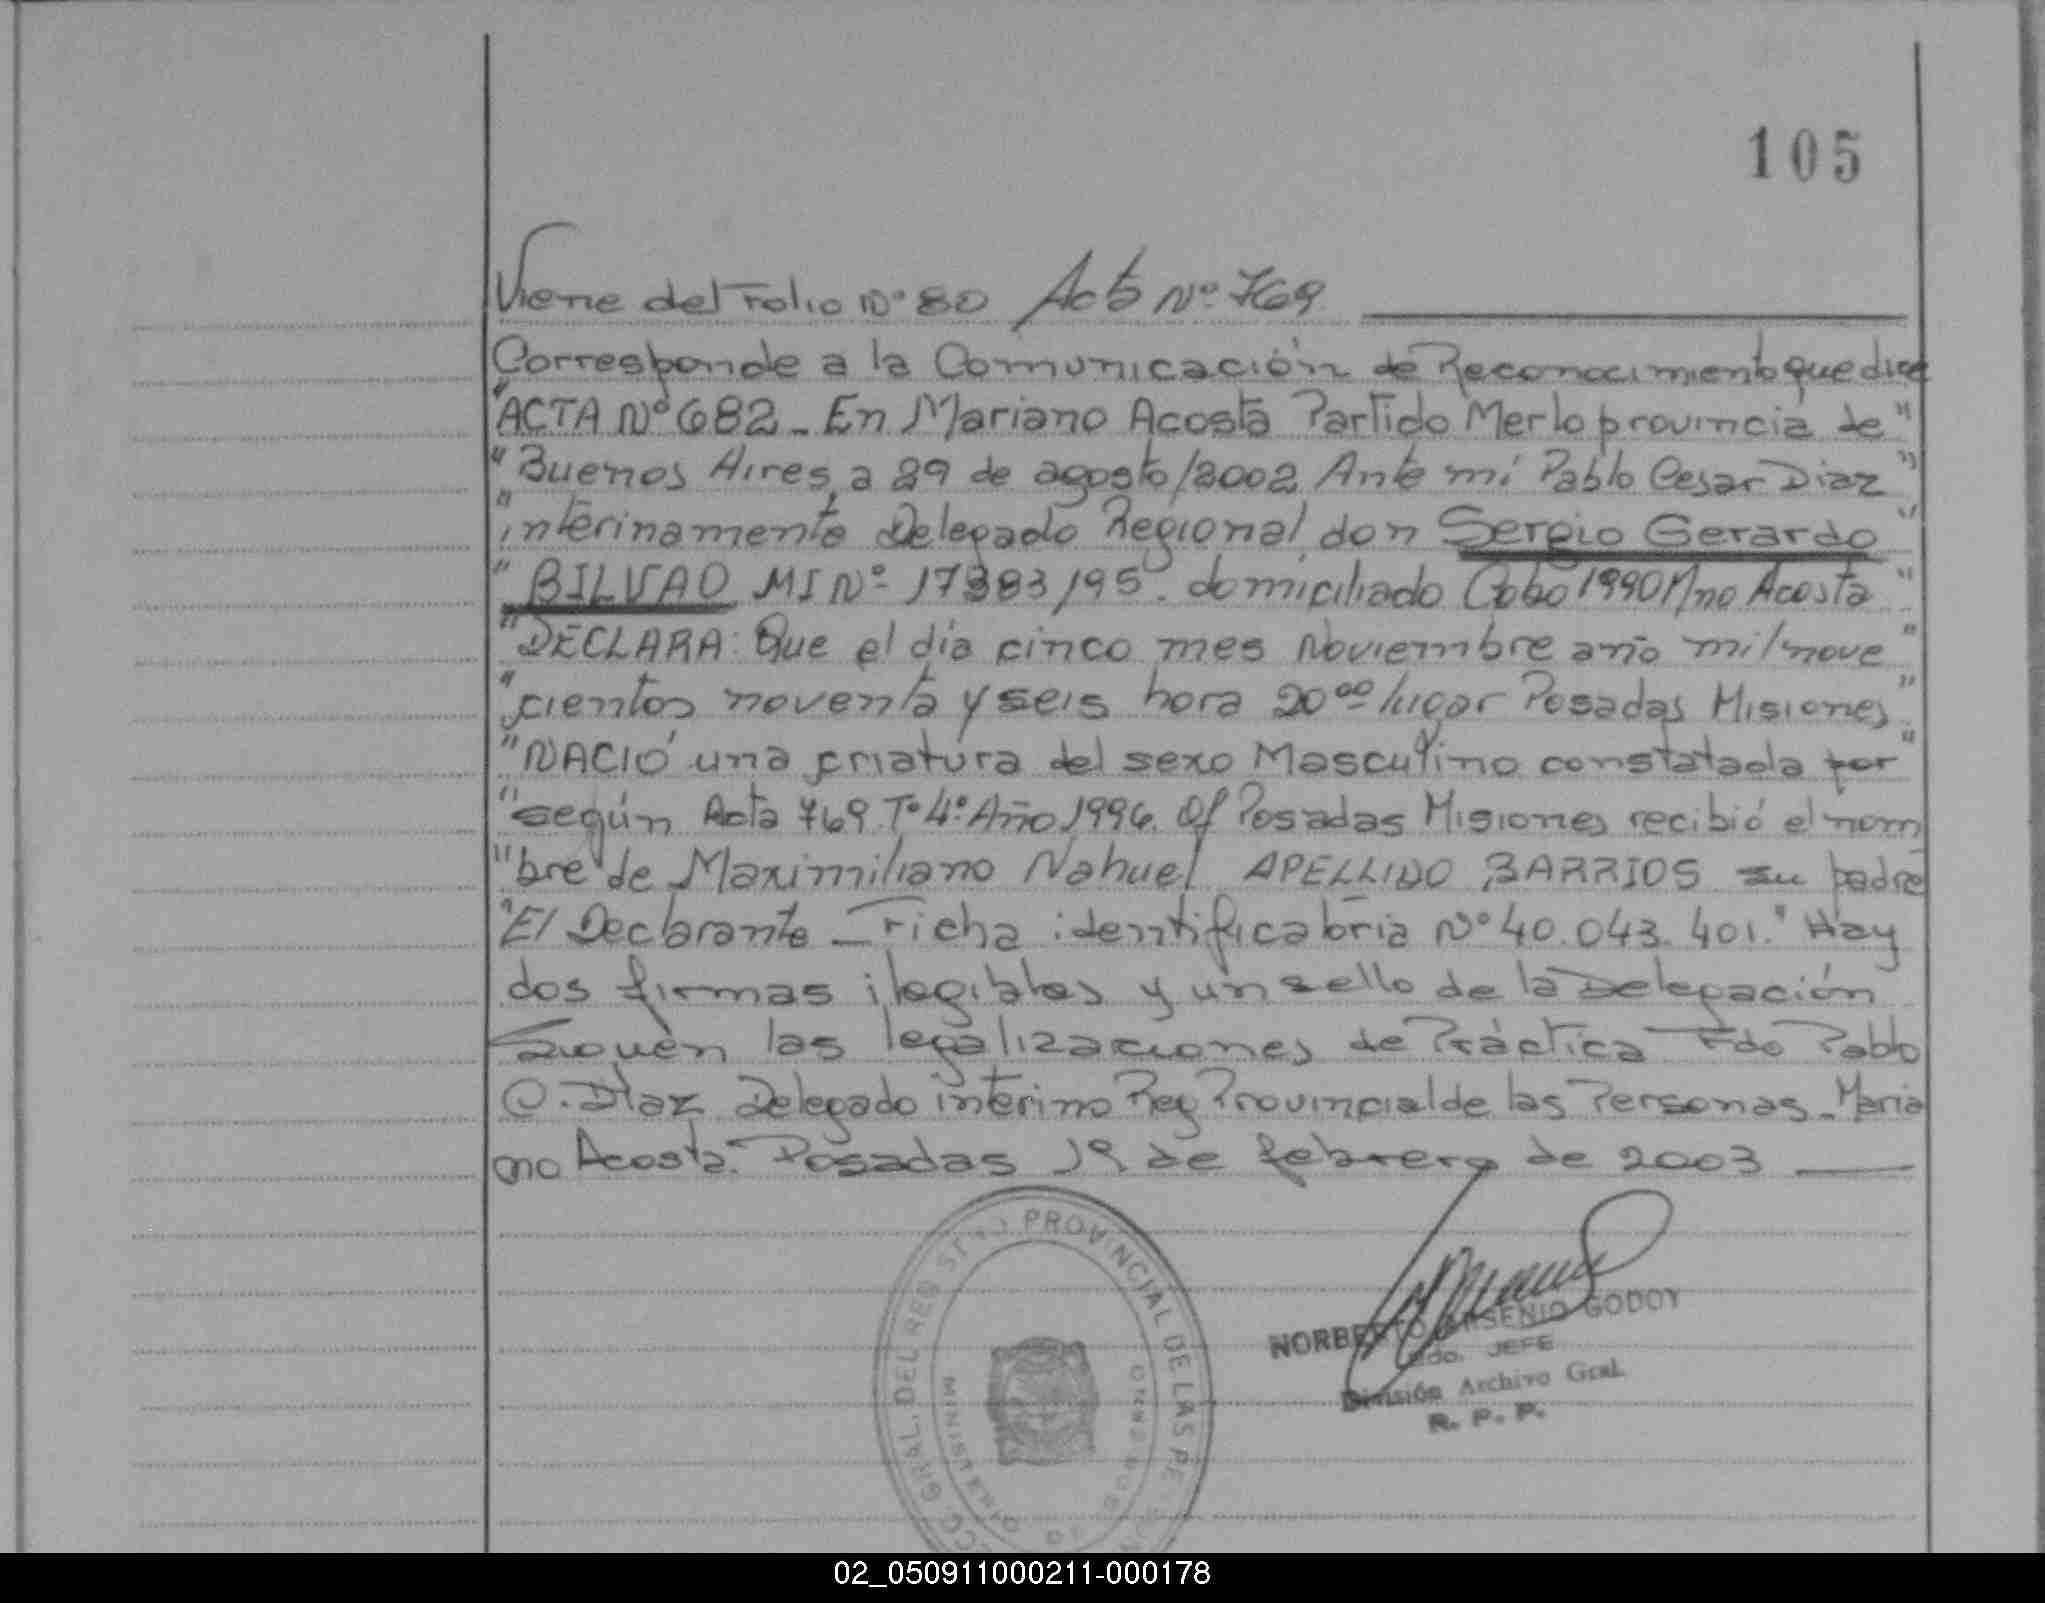 105
Viene del Folio Nº 80 Acta Nº 769
Corresponde a la Comunicación de Reconocimiento que dice
"ACTA Nº 682 - En Mariano Acosta Partido Merlo provincia de"
"Buenos Aires, a 29 de agosto/2002 Ante mí Pablo Cesar Diaz"
"interinamente Delegado Regional don Sergio Gerardo"
"BILVAO MI Nº 17383/95. domiciliado Cobo 1990 M/no Acosta"
"DECLARA: Que el día cinco mes Noviembre año mil nove"
"cientos noventa y seis hora 20ºº lugar Posadas Misiones"
"NACIÓ una criatura del sexo Masculino constatada por"
"según Acta 769 Tº 4º Año 1996. Of Posadas Misiones recibió el nom
"bre de Maximiliano Nahuel APELLIDO BARRIOS su padre
"El Declarante - Ficha identificatoria Nº 40.043.401." Hay
dos firmas ilegibles y un sello de la Delegación
Siguen las legalizaciones de Práctica Fdo Pablo
C. Diaz Delegado interino Reg Provincial de las Personas - Maria
no Acosta. Posadas 19 de febrero de 2003
PROVINCIAL DE LAS
GRAL. DEL REG
MINISTERIO
NORBERTO ARSENIO GODOY
2do. JEFE
División Archivo Gral.
R. P. P.
02_050911000211-000178